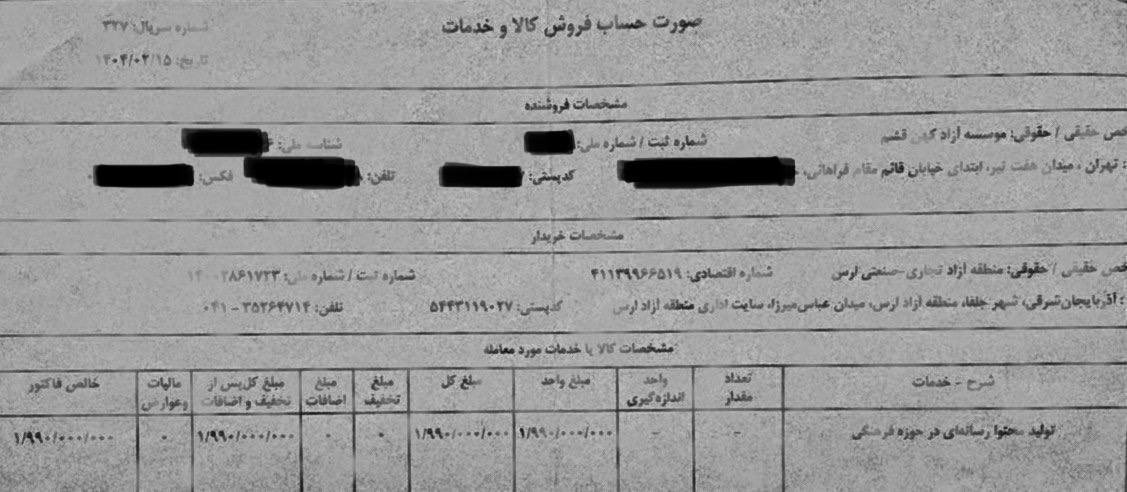 صورت حساب فروش کالا و خدمات
شماره سریال: ۳۲۷
تاریخ: ۱۴۰۴/۰۲/۱۵
مشخصات فروشنده
خص حقیقی / حقوقی: موسسه آزاد کهن قشم شماره ثبت / شماره ملی: شناسه ملی:
: تهران ، میدان هفت تیر، ابتدای خیابان قائم مقام فراهانی، کدپستی: تلفن: فکس:
مشخصات خریدار
خص حقیقی / حقوقی: منطقه آزاد تجاری-صنعتی ارس شماره اقتصادی: ۴۱۱۳۹۹۶۶۵۱۹ شماره ثبت / شماره ملی: ۱۴۰۰۲۸۶۱۷۲۳
: آذربایجان‌شرقی، شهر جلفا، منطقه آزاد ارس، میدان عباس‌میرزا، سایت اداری منطقه آزاد ارس کدپستی: ۵۴۴۳۱۱۹۰۲۷ تلفن: ۳۵۲۶۴۷۱۴ - ۰۴۱
مشخصات کالا یا خدمات مورد معامله
شرح - خدمات تعداد مقدار واحد اندازه‌گیری مبلغ واحد مبلغ کل مبلغ تخفیف مبلغ اضافات مبلغ کل‌پس از تخفیف و اضافات مالیات وعوارض خالص فاکتور
تولید محتوا رسانه‌ای در حوزه فرهنگی - - ۱/۹۹۰/۰۰۰/۰۰۰ ۱/۹۹۰/۰۰۰/۰۰۰ ۰ ۰ ۱/۹۹۰/۰۰۰/۰۰۰ ۰ ۱/۹۹۰/۰۰۰/۰۰۰